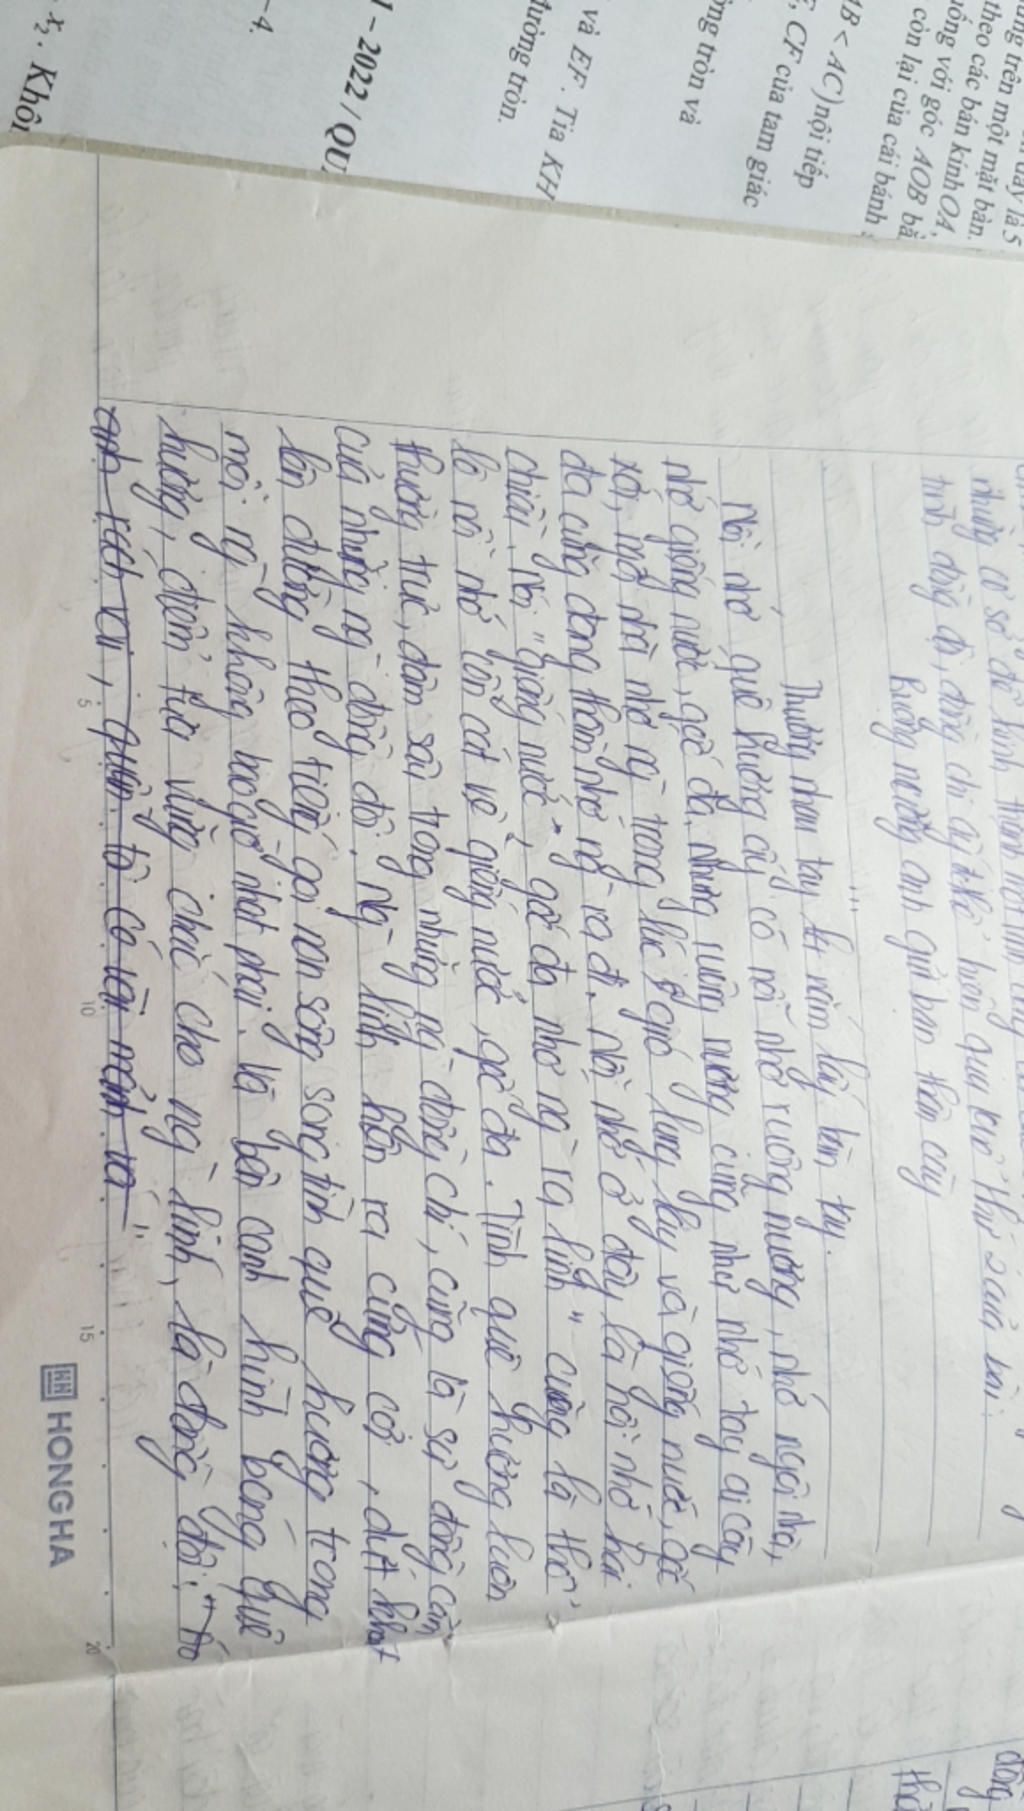 ung trên một mặt bàn.
theo các bán kính OA,
uống với góc AOB bằ
còn lại của cái bánh
AB < AC) nội tiếp
F, CF của tam giác
ng tròn và
và EF. Tia KH
đường tròn.
1 - 2022 / QU
-4.
x₂. Khôn
những cơ sở để hình thành một tình
tình đồng đội, đồng chí
Ruộng nương anh gửi bạn thân cày
"'
Thương nhau tay nắm lấy bàn tay.
Nỗi nhớ quê hương ấy có nỗi nhớ ruộng nương, nhớ ngôi nhà,
nhớ giếng nước, gốc đa. Nhưng ruộng nương cũng như nhớ tay ai cày
xới, ngôi nhà nhớ ng trong lúc gió lung lay và giếng nước, gốc
đa cũng đang thầm nhớ ng ra đi. Nỗi nhớ ở đây là nỗi nhớ hai
chiều. Nói "giếng nước, gốc đa nhớ ng ra lính" cũng là thổ
lộ nỗi nhớ luôn cả về giếng nước, gốc đa. Tình quê hương luôn
thường trực, đậm sâu trong những ng đồng chí, cũng là sự đồng cảm
của những ng đồng đội. Ng lính hẳn ra cũng cởi, dứt khoát
lên đường theo tiếng gọi non sông song tình quê hương trong
mỗi ng không bao giờ nhạt phai. Và bên cạnh hình bóng quê
hương, điểm tựa vững chắc cho ng lính, là đồng đội: "Áo
anh rách vai, quần tôi có vài mảnh vá"
5 10 15 20
HONG HA